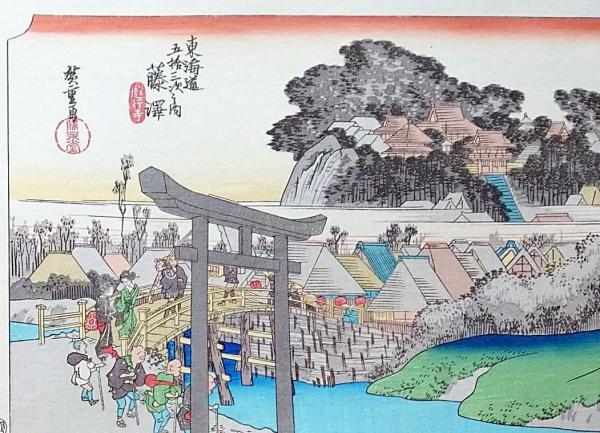 東海道
五拾三次之内
藤澤
遊行寺
廣重画
保永堂